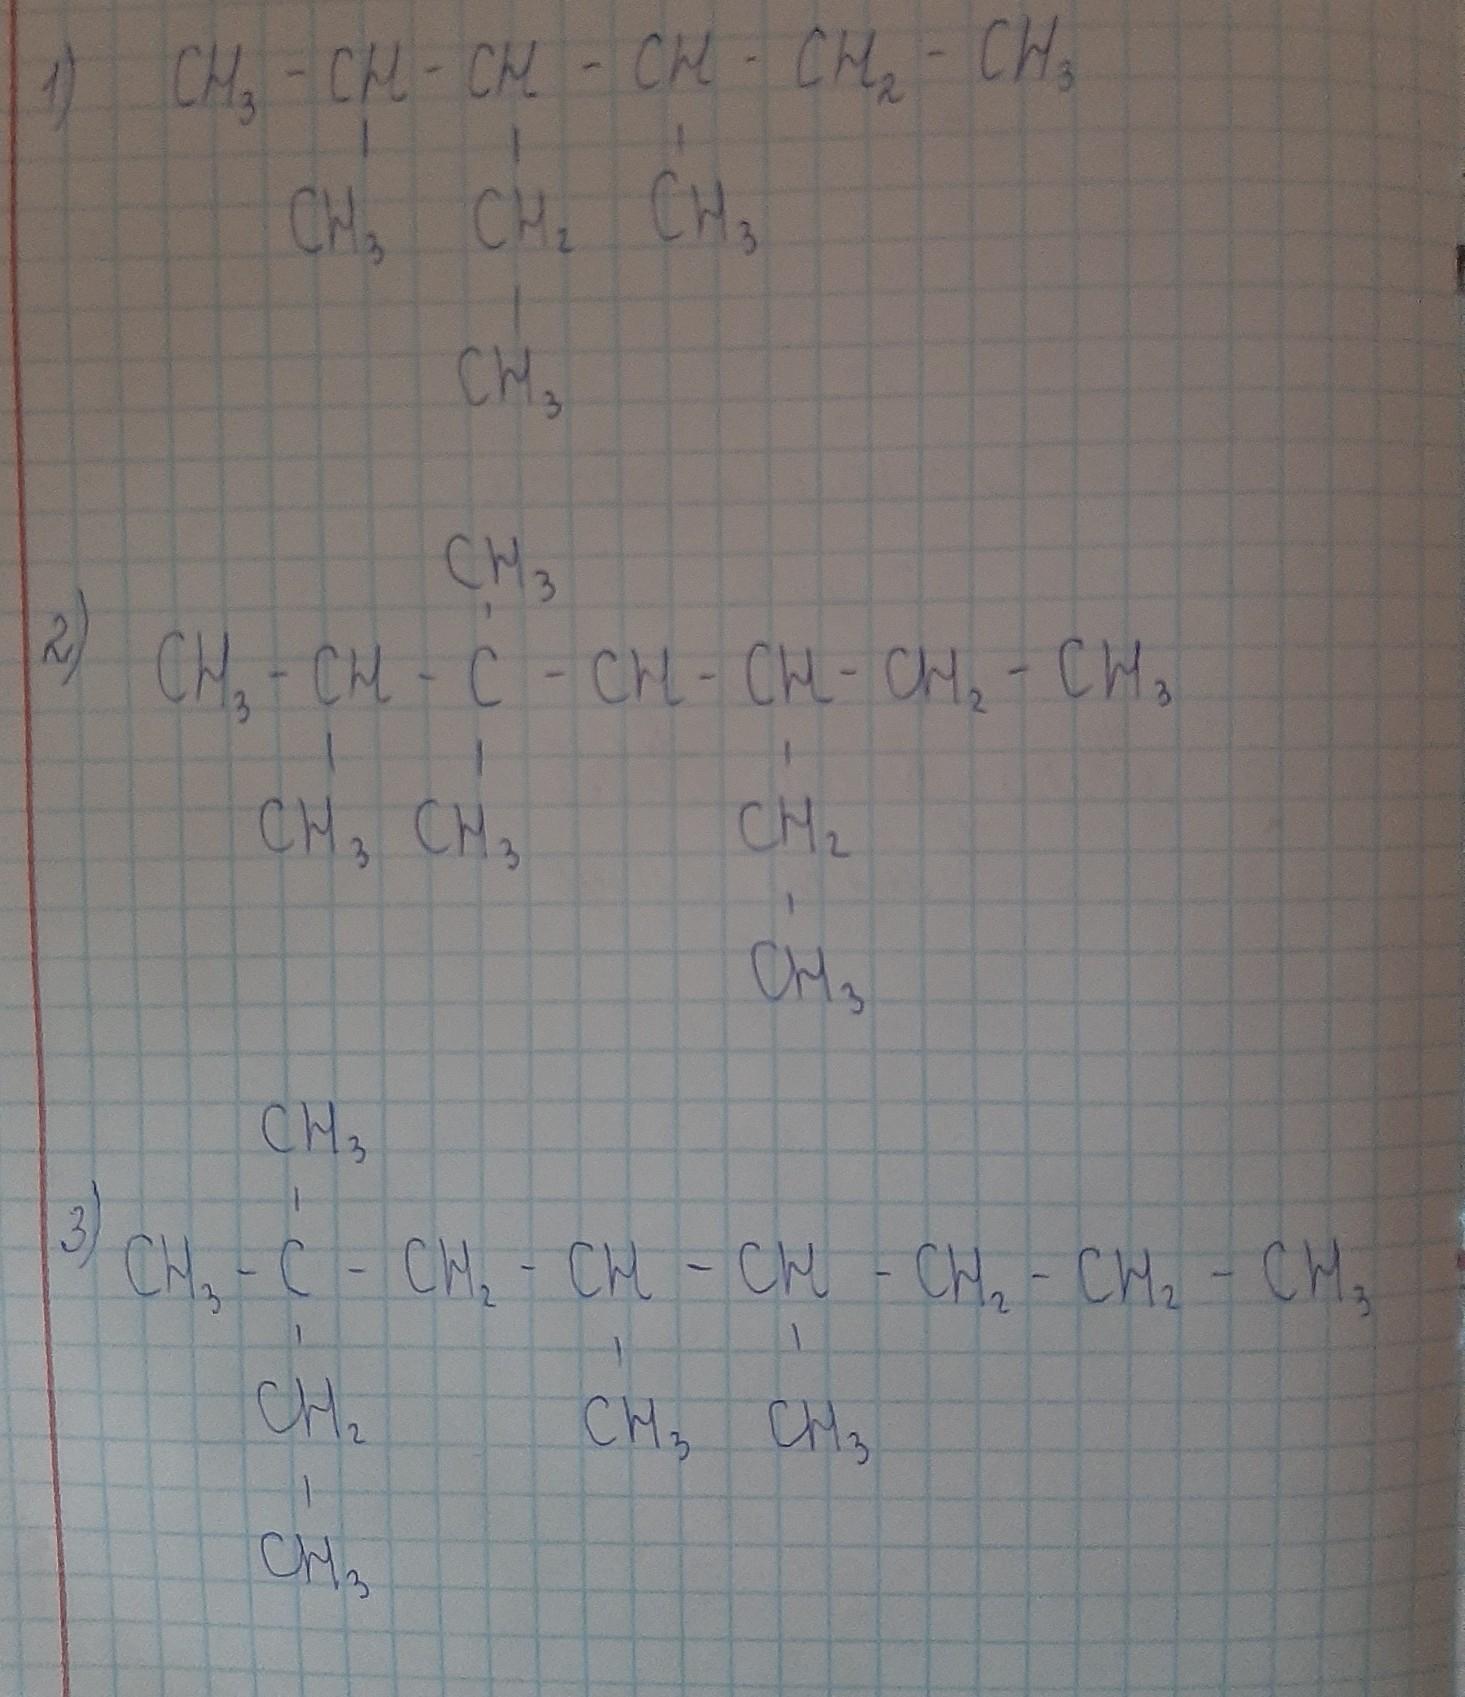 1) CH₃ - CH - CH - CH - CH₂ - CH₃
CH₃ CH₂ CH₃
CH₃
CH₃
2) CH₃ - CH - C - CH - CH - CH₂ - CH₃
CH₃ CH₃ CH₂
CH₃
CH₃
3) CH₃ - C - CH₂ - CH - CH - CH₂ - CH₂ - CH₃
CH₂ CH₃ CH₃
CH₃